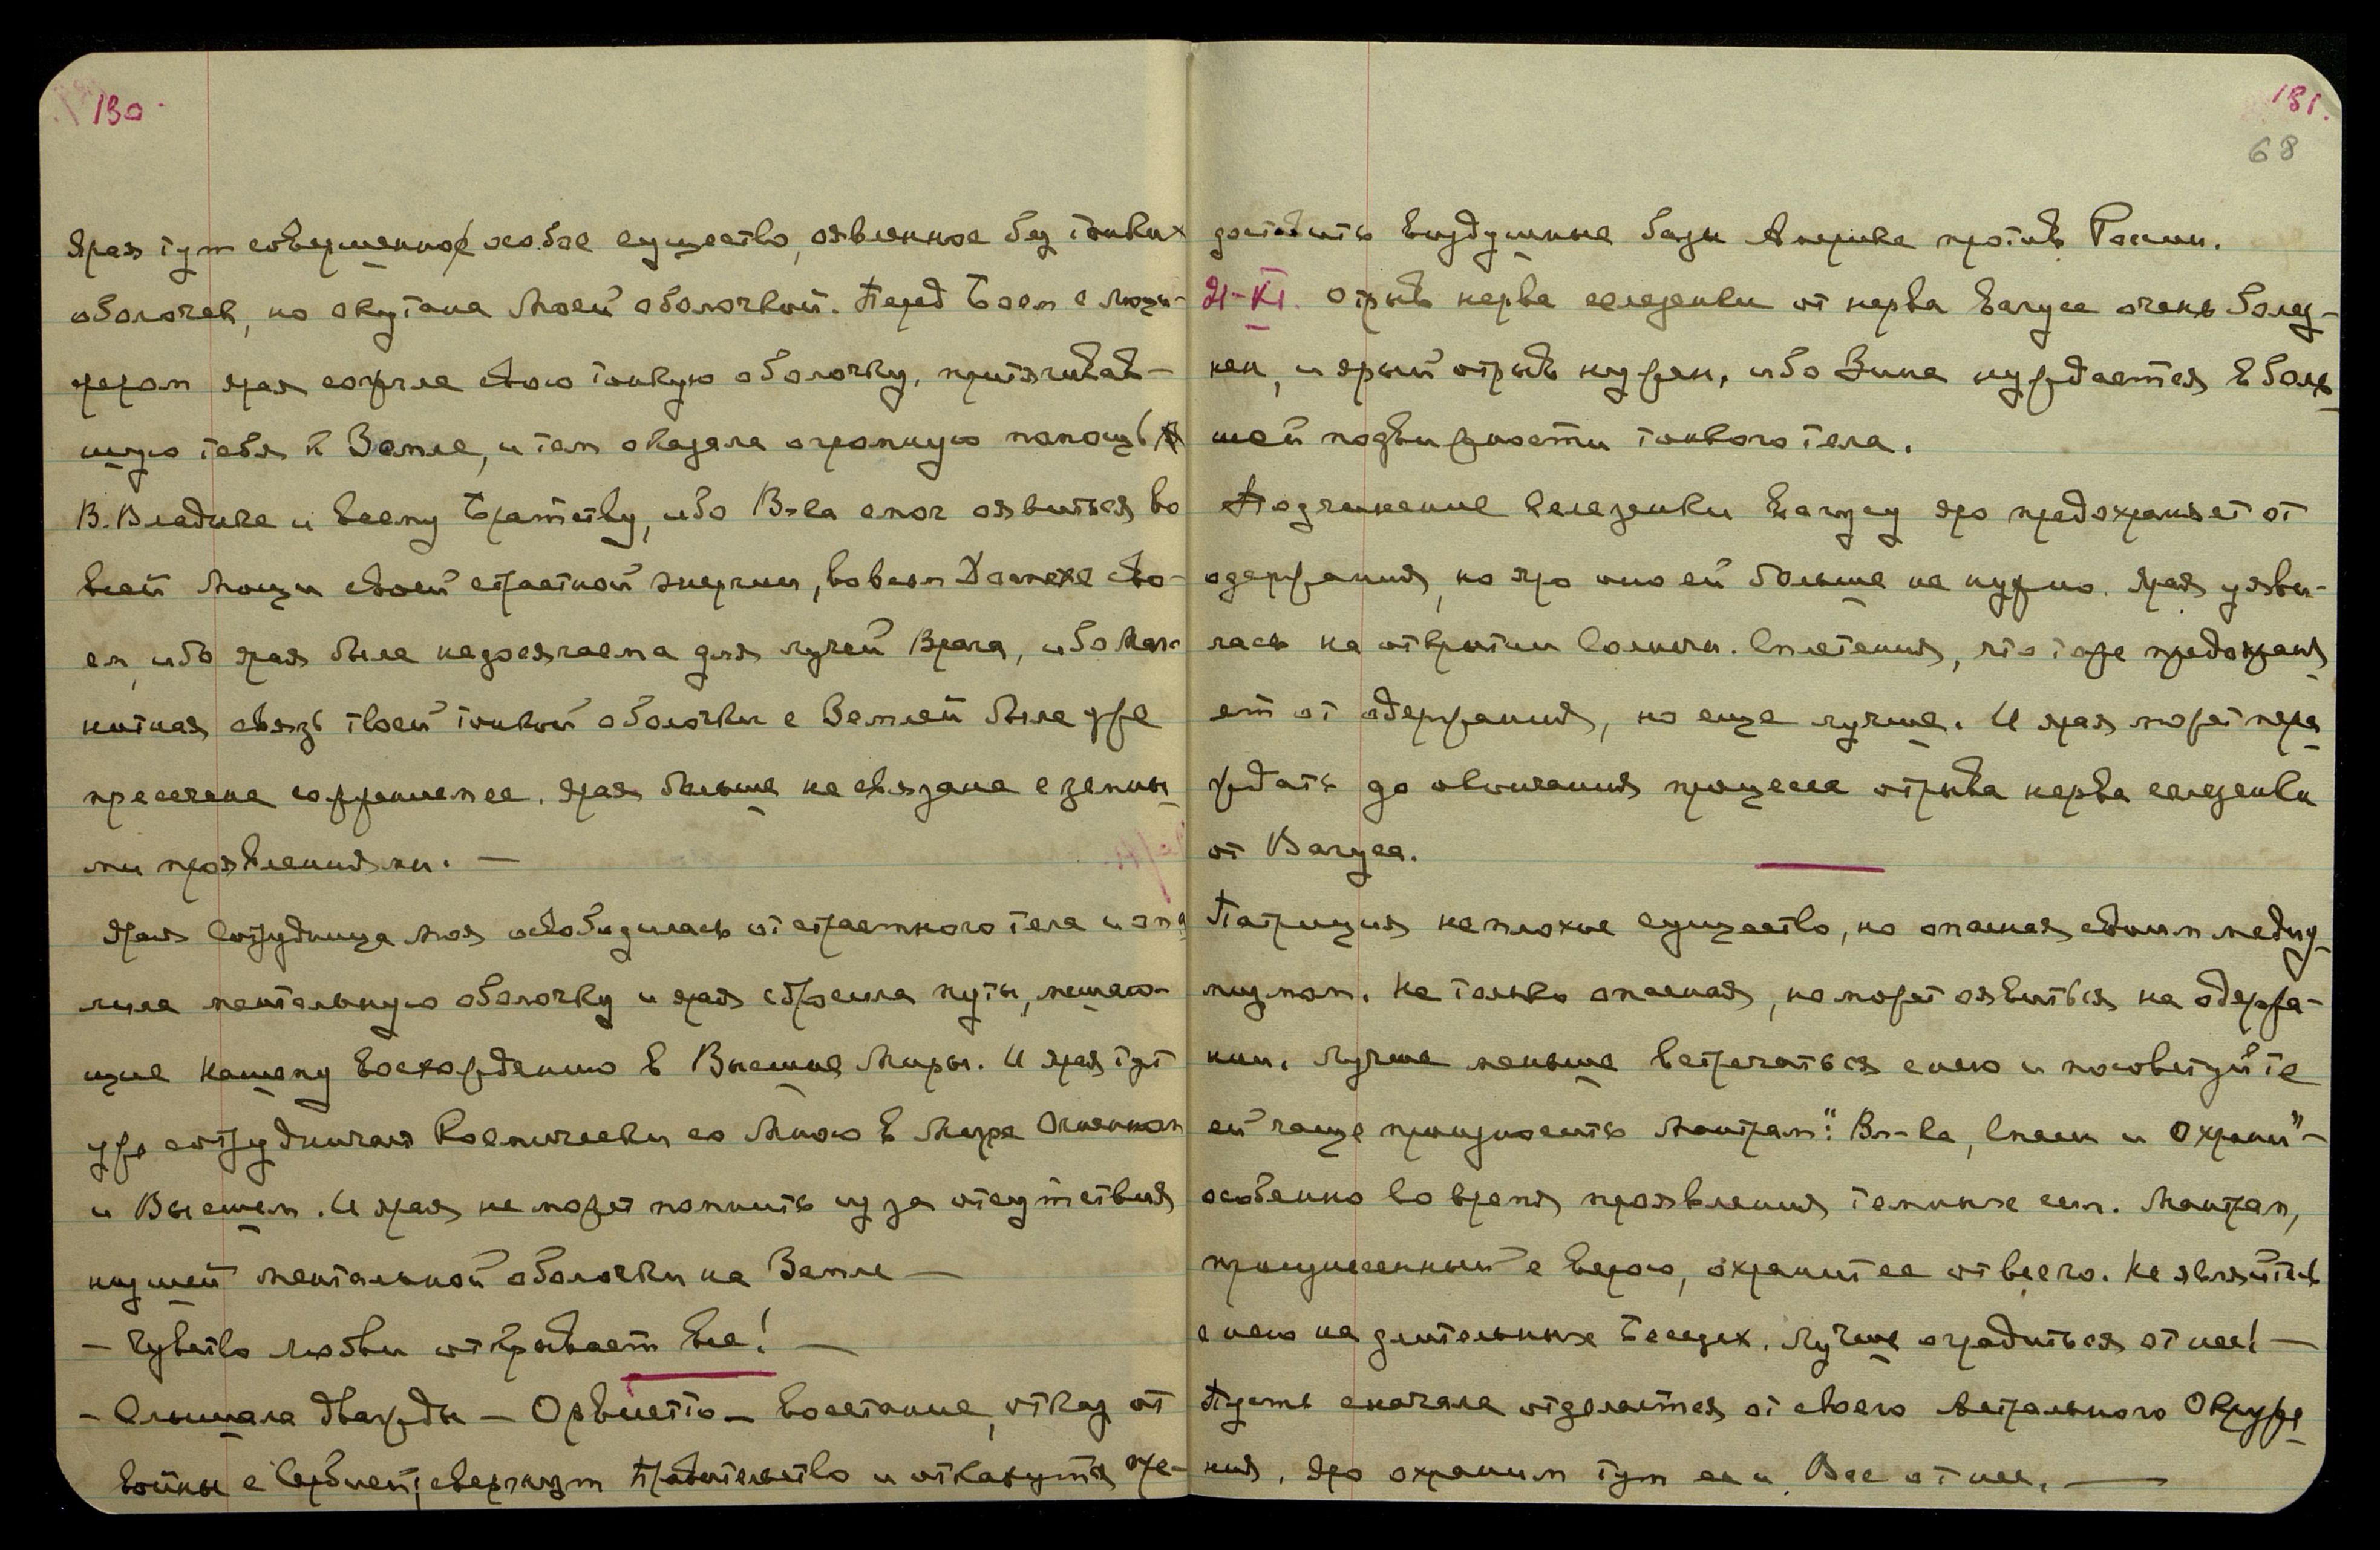 130.
Ярая тут совершенно особое существо, оявленное без тонких
оболочек, но окутана Моей оболочкой. Перед Боем с Люци-
фером ярая сожгла свою тонкую оболочку, притягивав-
шую тебя к Земле, и тем оказала огромную помощь
В. Владыке и всему Братству, ибо В-ка смог оявиться во
всей Мощи своей страстной энергии, во всем Доспехе Сво-
ем, ибо ярая была недосягаема для лучей Врага, ибо Маг-
нитная связь твоей тонкой оболочки с Землей была уже
пресечена сожжением ее. Ярая больше не связана с земны-
ми проявлениями. —
Ярая Сотрудница Моя освободилась от страстного тела и
ментальную оболочку и ярая сбросила путы, мешаю-
щие Нашему Восхождению в Высшие Миры. И ярая тут
уже сотрудничает Космически со Мною в Мире Огненном
и Высшем. И ярая не может помнить из за отсутствия
низшей ментальной оболочки на Земле —
— Чувство любви открывает все! —
— Слышала дважды — — Восстание, отказ от
войны с свергнут Правительство и откажутся пре-
181.
68
доставить воздушные базы Америке против России.
21-XI. Отрыв нерва селезенки от нерва Вагуса очень болез-
нен, и ярый отрыв нужен, ибо Зина нуждается в боль-
шей подвижности тонкого тела.
Подчинение Селезенки Вагусу яро предохраняет от
одержания, но яро оно ей больше не нужно. Ярая уяви-
лась на открытии Солнечн. Сплетения, что тоже предохраня-
ет от одержания, но еще лучше. И ярая может пере-
ждать до окончания процесса отрыва нерва селезенки
от Вагуса.
Патриция неплохое существо, но опасная своим медиу-
мизмом. Не только опасная, но может оявиться на одержа-
нии. Лучше меньше встречаться с нею и посоветуйте
ей чаще произносить Мантрам: "Вл-ка, Спаси и Охрани" —
особенно во время проявления темных сил. Мантрам,
произнесенный с верою, охранит ее от всего. Не являйтесь
с нею на длительных Беседах. Лучше оградиться от нее! —
Пусть сначала отделается от своего Астрального Окруже-
ния. Яро охраним тут ее и Вас от нее. —